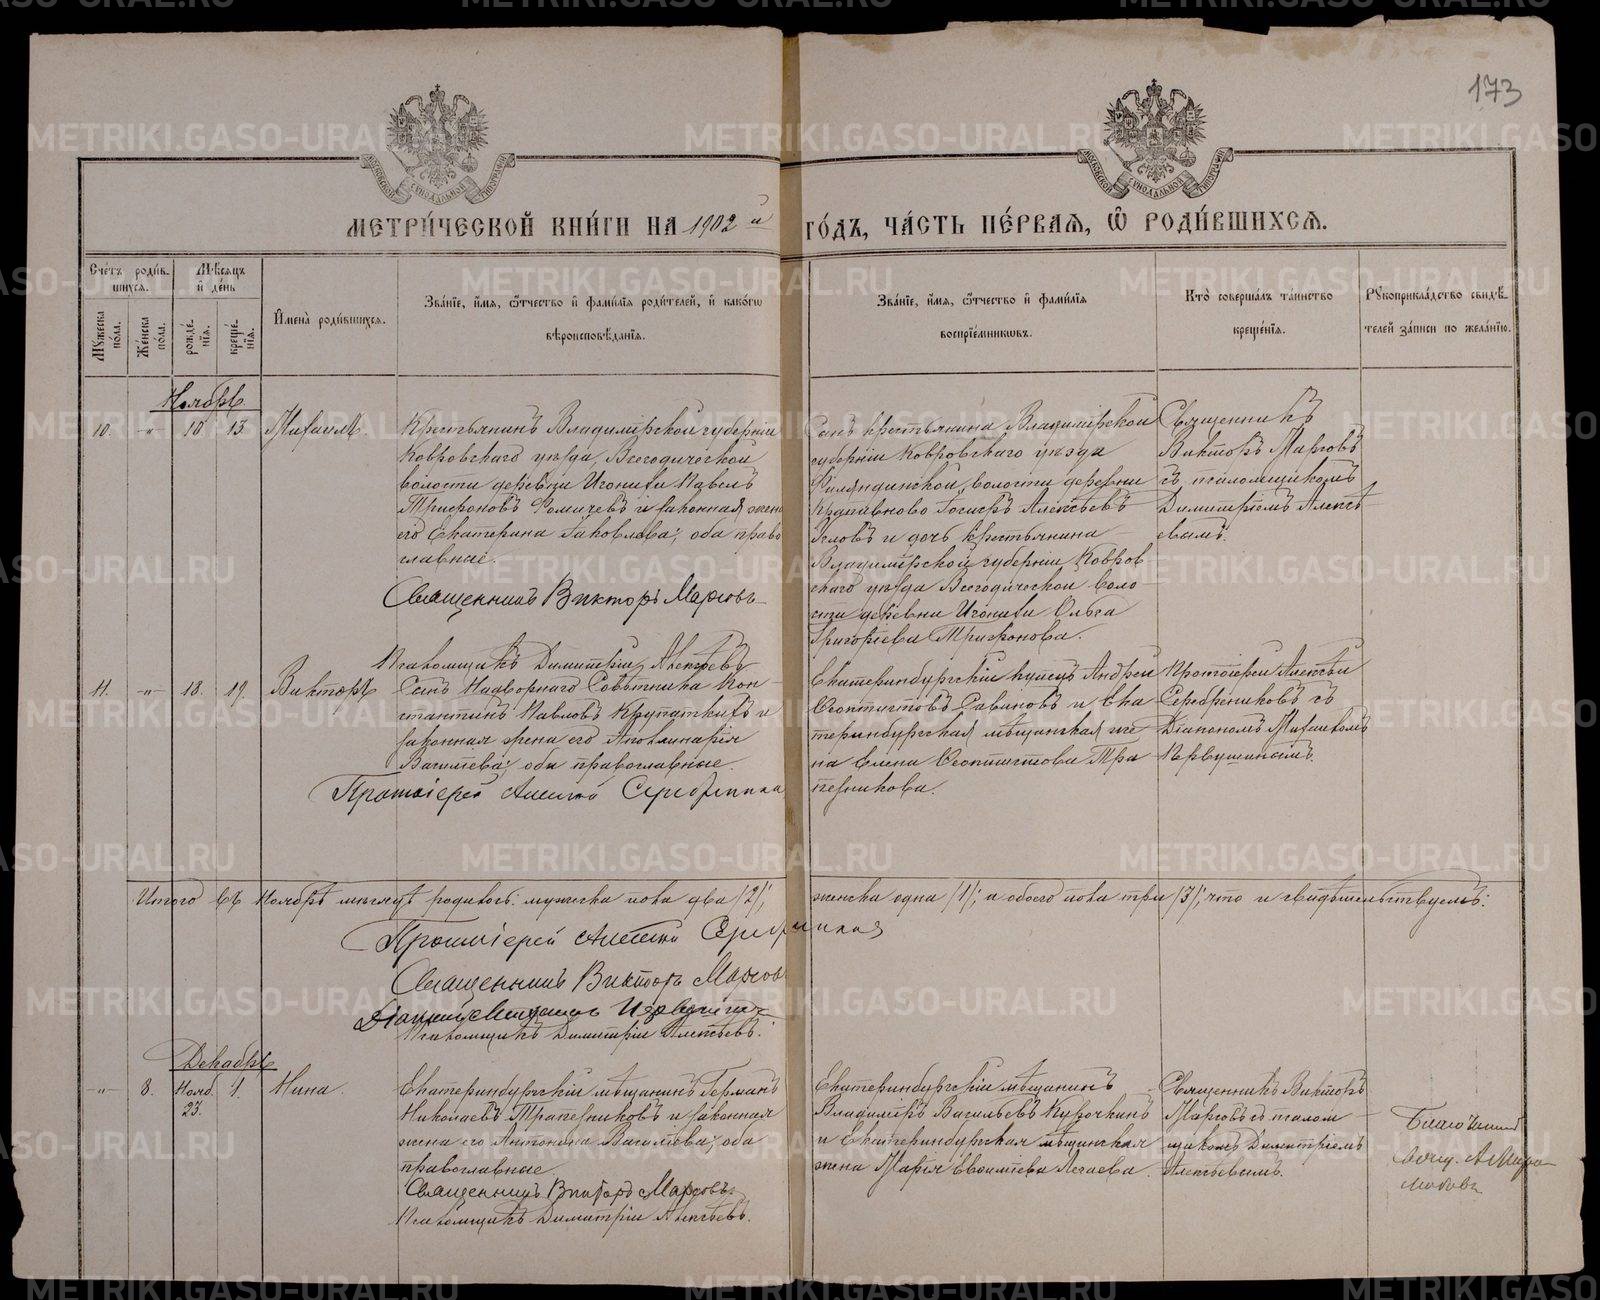 173
МЕТРИ́ЧЕСКОЙ КНИ́ГИ НА 1902 й ГО́ДЪ, ЧА́СТЬ ПЕ́РВАѦ, Ѡ҆ РОДИ́ВШИХСѦ.
Счетъ родив-шихсѧ.
Мѣсѧцъ и день
Мꙋжеска пола.
Женска пола.
рожде-нїѧ.
креще-нїѧ.
Имена родившихсѧ.
Званїе, имѧ, ѿчество и фамилїѧ родителей, и какогѡ
вѣроисповѣданїѧ.
Званїе, имѧ, ѿчество и фамилїѧ
воспрїемникѡвъ.
Кто совершалъ таинство
крещенїѧ.
Рꙋкоприкладство свидѣ-
телей записи по желанїю.
Ноябрь.
10. " 10 13 Михаилъ.
Крестьянинъ Владимірской губерніи
Ковровскаго уѣзда, Всегодической
волости деревни Игонихи Павелъ
Трифоновъ и законная жена
его Екатерина Іаковлева; оба право
славные.
Священникъ Викторъ Марковъ
Псаломщикъ Димитрій Алексѣевъ
Сынъ крестьянина Владимірской
губерніи Ковровскаго уѣзда
волости деревни
Алексѣевъ
и дочь крестьянина
Владимірской губерніи Ковров
скаго уѣзда Всегодической воло
сти деревни Игонихи Ольга
Григоріева Трифонова.
Священникъ
Викторъ Марковъ
съ псаломщикомъ
Димитріемъ Алексѣ
евымъ.
11. " 18. 19. Викторъ
Сынъ Надворнаго Совѣтника Кон
стантинъ Павловъ и
законная жена его Аполлинарія
Васильева; оба православные.
Протоіерей Алексій Серебренниковъ
Екатеринбургскій купецъ Андрей
Ѳеоктистовъ Савиновъ и Ека
теринбургская мѣщанская же
на Елена Ѳеоктистова Тра
пезникова.
Протоіерей Алексѣй
Серебренниковъ съ
Діакономъ Михаиломъ
Первушинымъ.
Итого въ Ноябрѣ мѣсяцѣ родилось: мужеска пола два /2/, женска одна /1/, а обоего пола три /3/, что и свидѣтельствуемъ:
Протоіерей Алексій
Священникъ Викторъ Марковъ
Діаконъ Михаилъ
Псаломщикъ Димитрій Алексѣевъ.
Декабрь
" 8. Нояб. 23. 1. Нина.
Екатеринбургскій мѣщанинъ Германъ
Николаевъ Трапезниковъ и законная
жена его Антонина Васильева; оба
православные
Священникъ Викторъ Марковъ.
Псаломщикъ Димитрій Алексѣевъ.
Екатеринбургскій мѣщанинъ
Владиміръ Васильевъ Курочкинъ
и Екатеринбургская мѣщанская
жена Марія Евѳиміева
Священникъ Викторъ
Марковъ съ псалом
щикомъ Димитріемъ
Алексѣевымъ.
Благочинный
METRIKI.GASO-URAL.RU